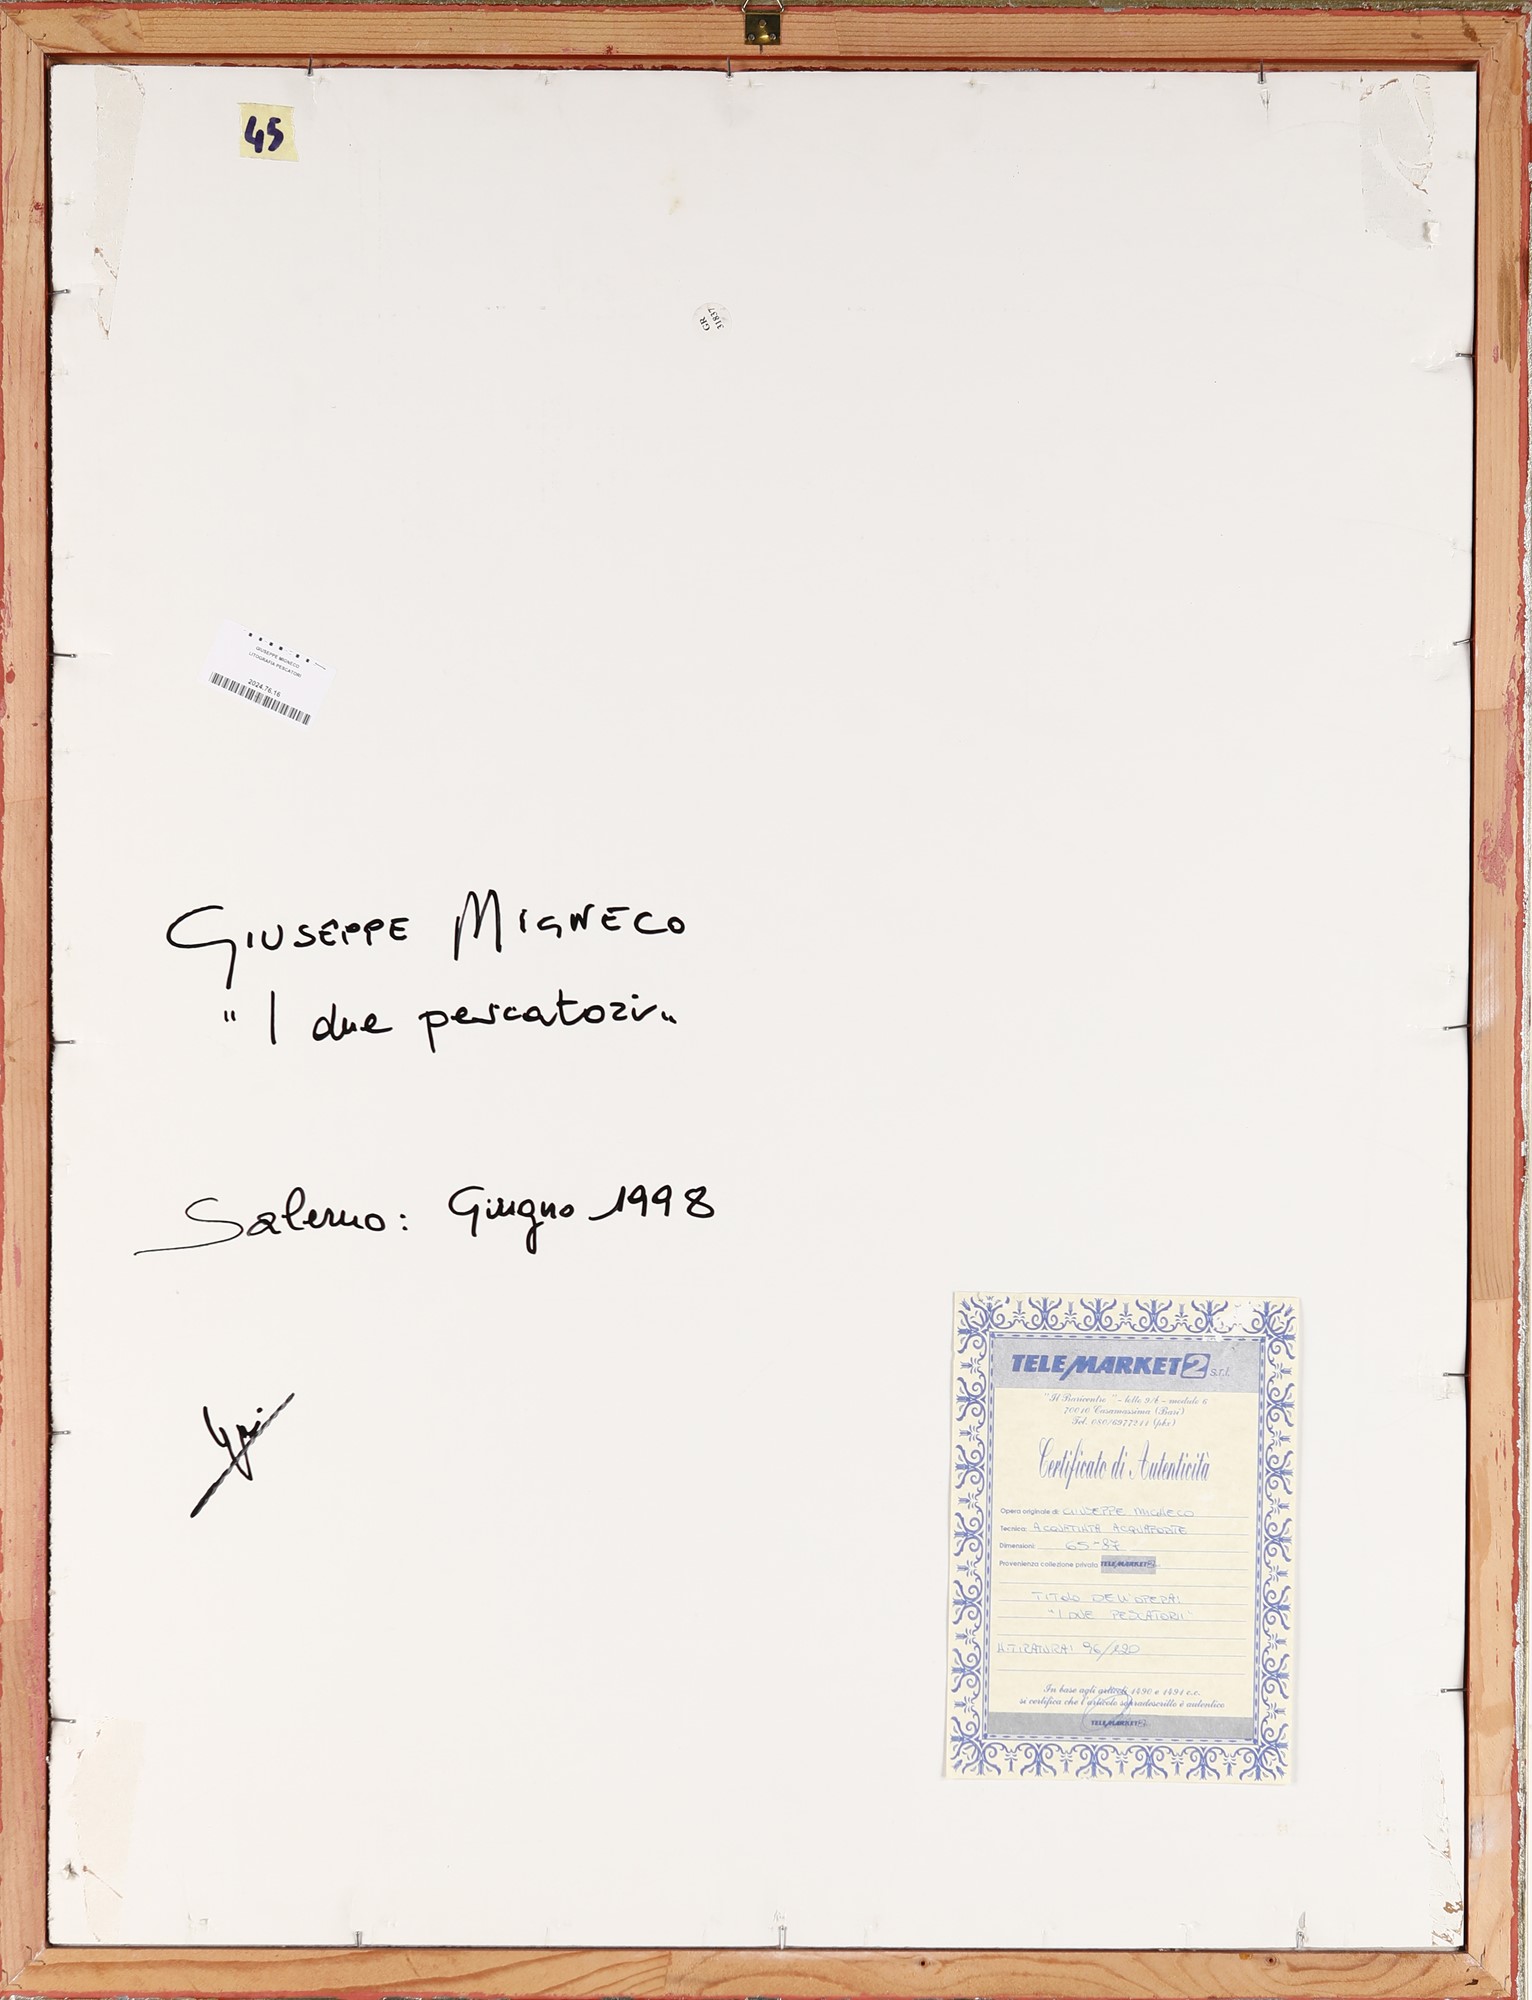 45
GR
31837
GIUSEPPE MIGNECO
LITOGRAFIA PESCATORI
2024.76.16
GIUSEPPE MIGNECO
"I due pescatori"
Salerno: Giugno 1998
TELEMARKET2 s.r.l.
"Il Baricentro" - lotto 9/A - modulo 6
70010 Casamassima (Bari)
Tel. 080/6977244 (pbx)
Certificato di Autenticità
Opera originale di: GIUSEPPE MIGNECO
Tecnica: ACQUATINTA ACQUAFORTE
Dimensioni: 65-87
Provenienza collezione privata TELEMARKET2
TITOLO DELL'OPERA:
"I DUE PESCATORI"
N. TIRATURA: 96/120
In base agli articoli 1490 e 1491 c.c.
si certifica che l'articolo sopradescritto è autentico
TELEMARKET2